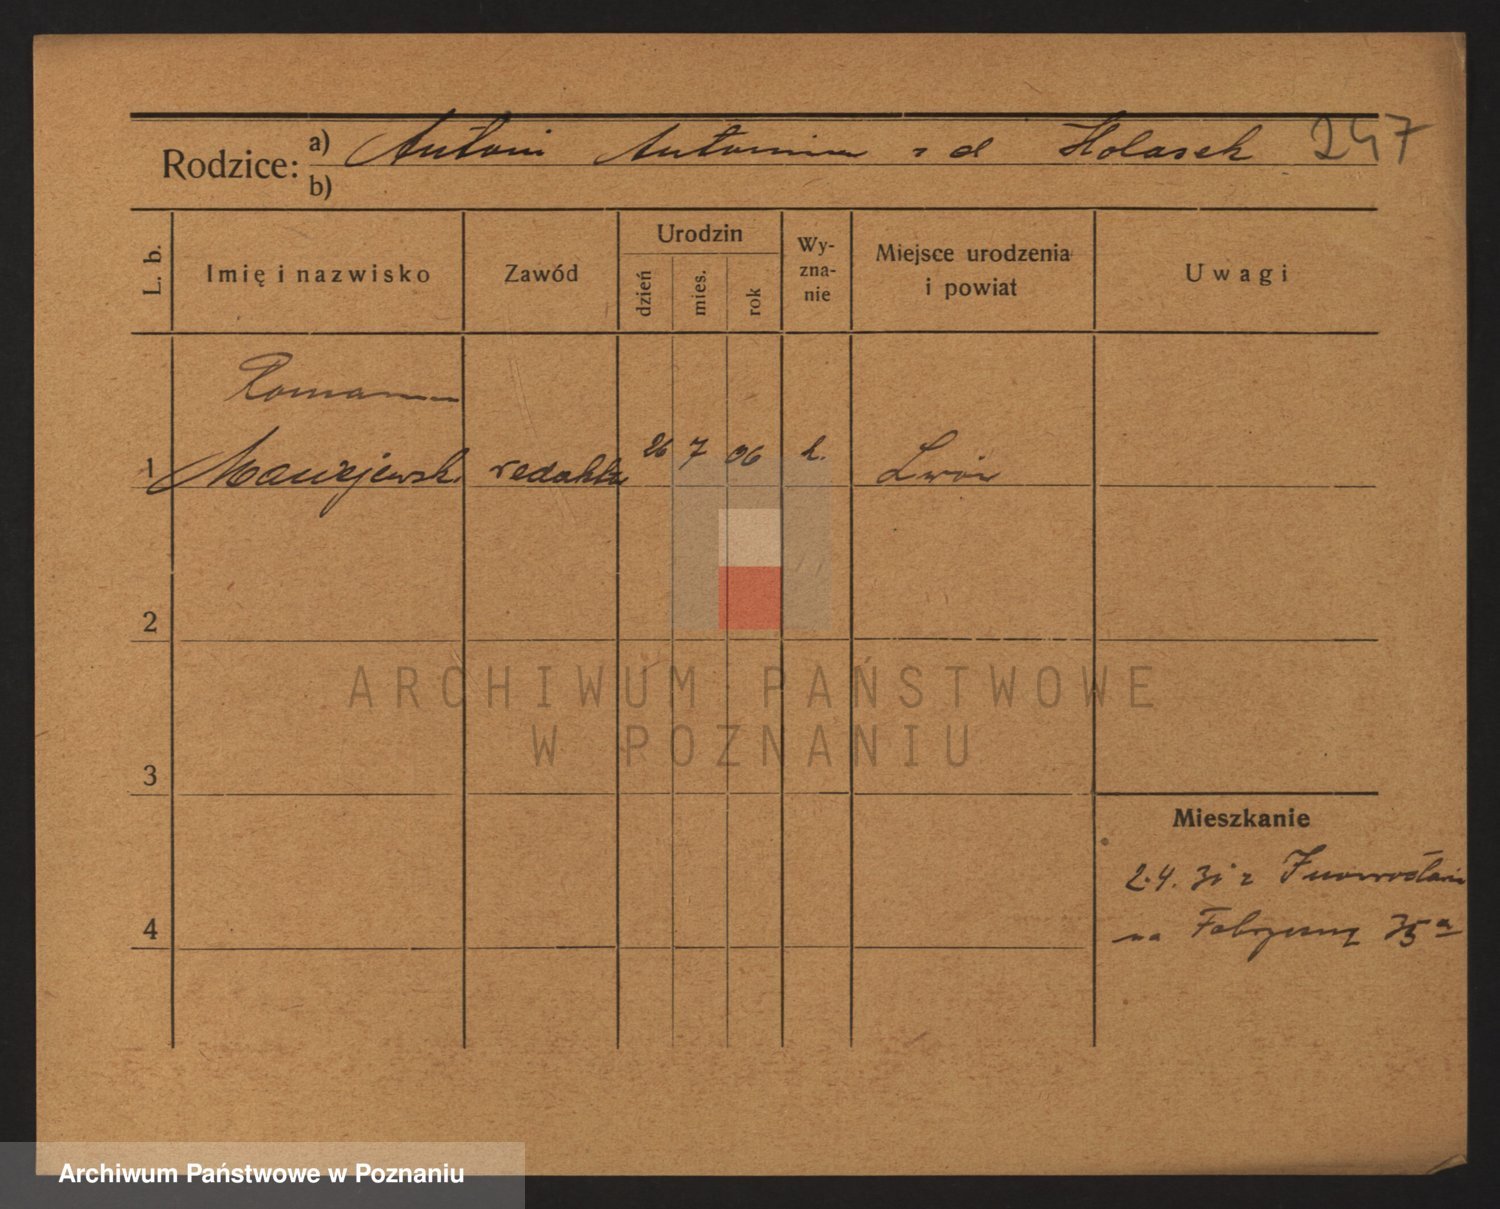 Rodzice: a) Antoni Antonina z d Holasek 247
b)
L. b.
Imię i nazwisko
Zawód
Urodzin
dzień
mies.
rok
Wy-
zna-
nie
Miejsce urodzenia
i powiat
Uwagi
Roman
1 Maciejewski redaktor 26 7 06 k. Lwów
2
3
4
ARCHIWUM PAŃSTWOWE
W POZNANIU
Mieszkanie
2.4. z Inowrocławia
na Fabryczną 35a
Archiwum Państwowe w Poznaniu